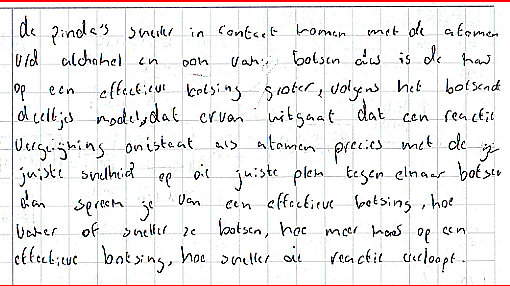 de pinda's sneller in contact komen met de atomen
v/d alchohol en dan vaker botsen dus is de kans
op een effectieve botsing groter, volgens het botsende
deeltjes model, dat ervan uitgaat dat een reactie
vergijging onistaat als atomen precies met de
juiste snelheid op de juiste plek tegen elnaar botsen
dan spreek je van een effectieve botsing, hoe
vaker of sneller ze botsen, hoe meer kans op een
effectieve botsing, hoe sneller die reactie verloopt.